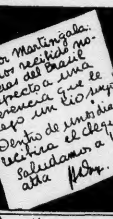 or Martingala:
os recibido no-
vas del Brasil
specto a una
erencia que le
ejo un tío suyo
Dentro de unos días
recibirá el cheque
Saludamos a
atta